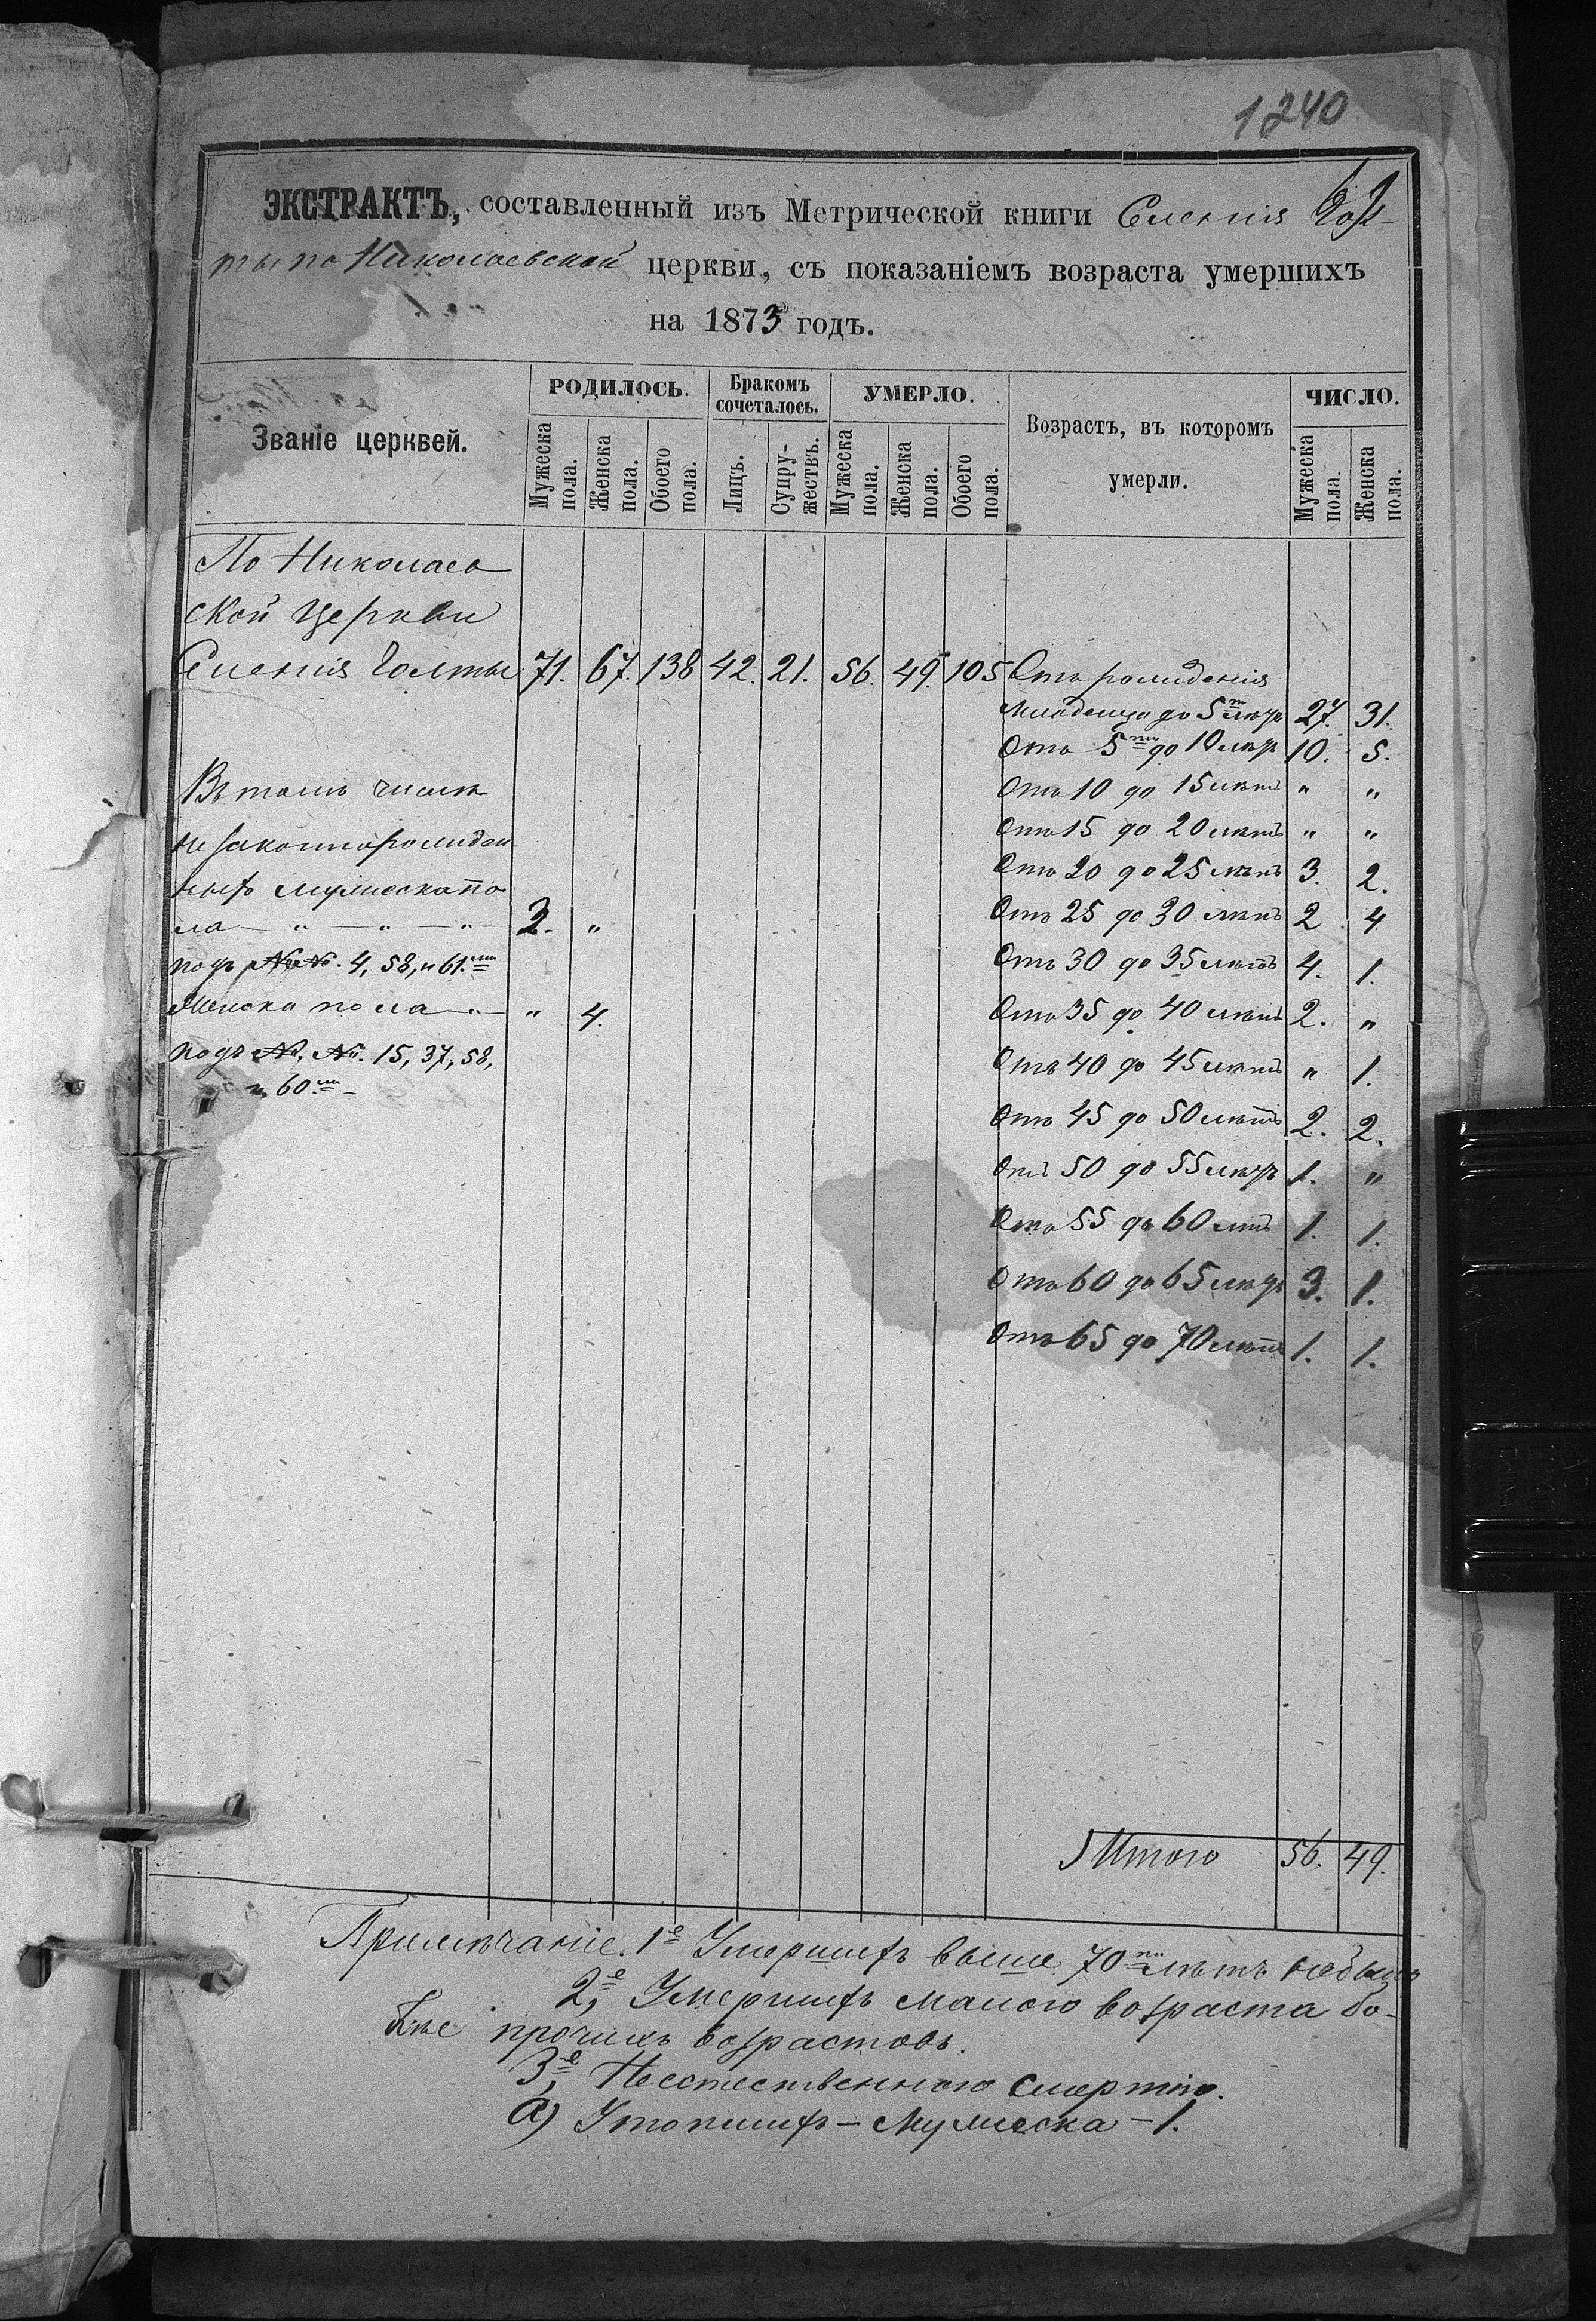 1240
ЭКСТРАКТЪ, составленный изъ Метрической книги Селенія Гол-
ты по Николаевской церкви, съ показаніемъ возраста умершихъ
на 1873 годъ.
Званіе церквей.
РОДИЛОСЬ.
Мужеска пола.
Женска пола.
Обоего пола.
Бракомъ сочеталось.
Лицъ.
Супру-жествъ.
УМЕРЛО.
Мужеска пола.
Женска пола.
Обоего пола.
Возрастъ, въ которомъ
умерли.
ЧИСЛО.
Мужеска пола.
Женска пола.
По Николаев
ской Церкви
Селенія Голты 71. 67. 138 42. 21. 56. 49. 105 Отъ рожденія
Младенца до 5ти лѣтъ 27. 31.
Отъ 5ти до 10 лѣтъ 10. 5.
Въ томъ числѣ
Отъ 10 до 15 лѣтъ " "
незаконнорожден
Отъ 15 до 20 лѣтъ " "
ныхъ мужеска по
Отъ 20 до 25 лѣтъ 3. 2.
ла — " — " — " — 3. "
Отъ 25 до 30 лѣтъ 2 4
подъ №№. 4, 58, и 61.мъ
Отъ 30 до 35 лѣтъ 4. 1.
Женска пола — " — " 4.
Отъ 35 до 40 лѣтъ 2. "
подъ №. №. 15, 37, 58,
Отъ 40 до 45 лѣтъ " 1.
и 60.мъ –
Отъ 45 до 50 лѣтъ 2. 2.
Отъ 50 до 55 лѣтъ 1. "
Отъ 55 до 60 лѣтъ 1. 1.
Отъ 60 до 65 лѣтъ 3. 1.
Отъ 65 до 70 лѣтъ 1. 1.
Итого 56. 49.
Примѣчаніе. 1е Умершихъ выше 70ти лѣтъ небыло
2е, Умершихъ малого возраста бо-
лѣе прочихъ возрастовъ.
3е, Неестественною смертію.
а) Утопшихъ – Мужеска – 1.